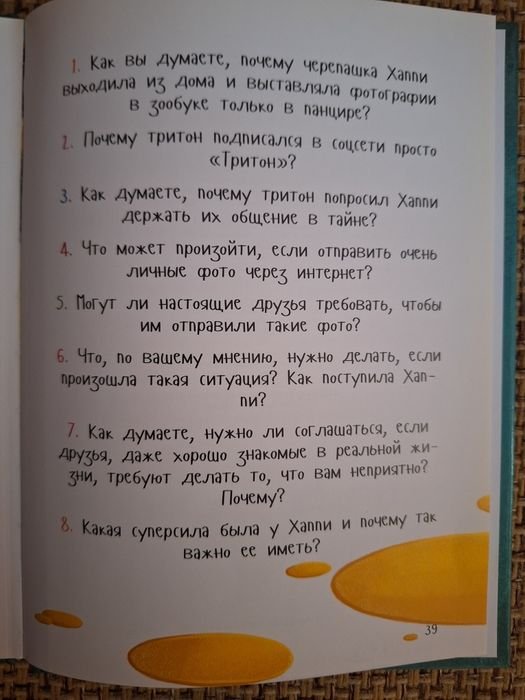 1. Как вы думаете, почему черепашка Хаппи
выходила из дома и выставляла фотографии
в зообуке только в панцире?
2. Почему тритон подписался в соцсети просто
«Тритон»?
3. Как думаете, почему тритон попросил Хаппи
держать их общение в тайне?
4. Что может произойти, если отправить очень
личные фото через интернет?
5. Могут ли настоящие друзья требовать, чтобы
им отправили такие фото?
6. Что, по вашему мнению, нужно делать, если
произошла такая ситуация? Как поступила Хап-
пи?
7. Как думаете, нужно ли соглашаться, если
друзья, даже хорошо знакомые в реальной жи-
зни, требуют делать то, что вам неприятно?
Почему?
8. Какая суперсила была у Хаппи и почему так
важно ее иметь?
39